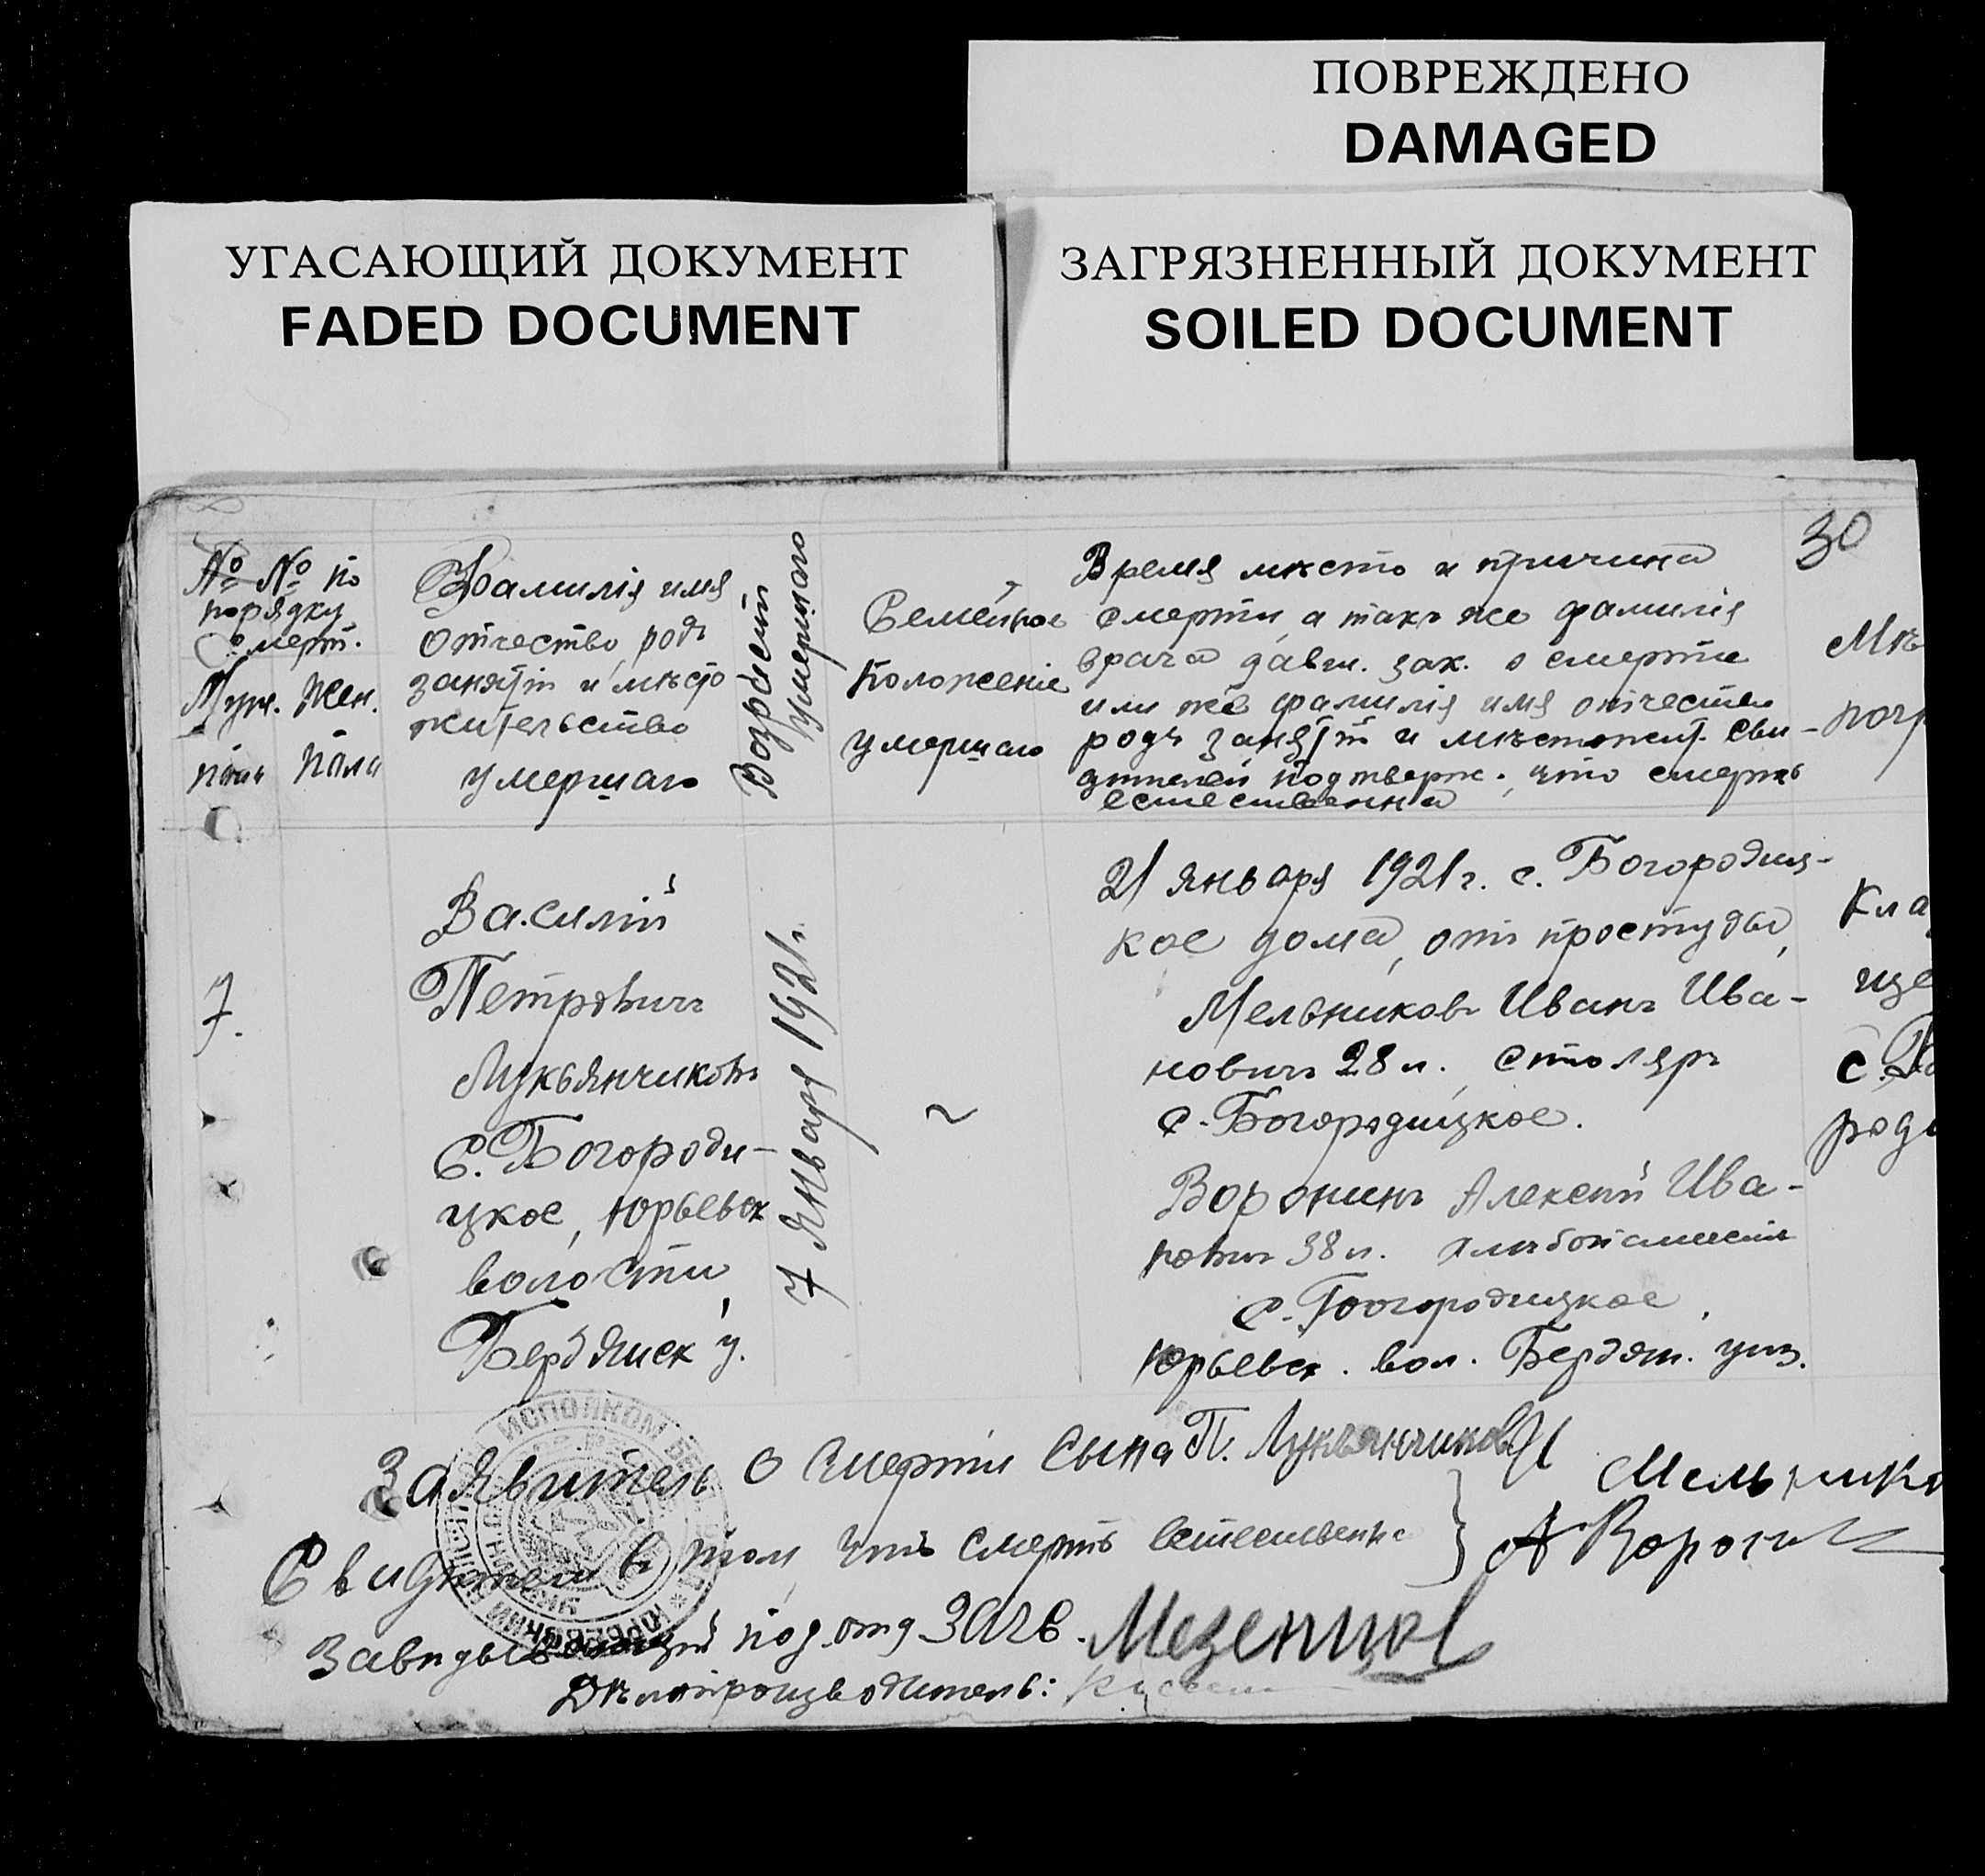 ПОВРЕЖДЕНО
DAMAGED
УГАСАЮЩИЙ ДОКУМЕНТ
FADED DOCUMENT
ЗАГРЯЗНЕННЫЙ ДОКУМЕНТ
SOILED DOCUMENT
30
№ № по
порядку
смерт.
Муж. Жен.
пола пола
Фамилія имя
отчество, родъ
занятій и мѣсто
жительство
умершаго
Возрастъ
умершаго
Семейное
положеніе
умершаго
Время мѣсто и причина
смерти, а такъ же фамилія
врача давш. зак. о смерти
или же фамилія имя отчество
родъ занятій и мѣстожит. сви-
дѣтелей подтверж. что смерть
естественна
Мѣ
погр
7.
Василій
Петровичъ
Лукьянчиковъ
с. Богороди-
цкое, Юрьевск
волости,
Бердянск у.
7 января 1921 г.
~
21 января 1921 г. с. Богородиц-
кое дома, отъ простуды,
Мельниковъ Иванъ Ива-
новичъ 28 л. столяръ
с. Богородицкое.
Воронинъ Алексѣй Ива-
новичъ 38 л. хлѣбопашест
с. Богородицкое,
Юрьевск. вол. Бердян. уѣз.
Кла
ще
с. Бо
роди
Заявитель о смерти сына П. Лукьянчиковъ
Свидѣтели въ том, что смерть естественна } Мельнико
А Воронин
Завѣдывающій под. отд ЗАГС. Мезенцов
Дѣлопроизводитель:
ИСПОЛКОМ